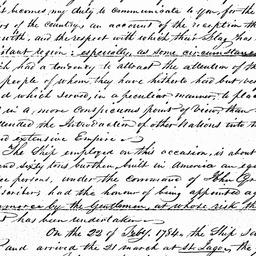 it becomes my duty to communicate to you, for the
rs of the country, an account of the reception th
with, and the respect with which their Flag has
distant region; especially, as some circumstances
which had a tendency to attract the attention of th
people of whom, they have hitherto had but ve
d which served, in a peculiar manner, to pla
in a more conspicuous point of view, than
attended the Introduction of other Nations into th
and extensive Empire.
The Ship employed on this occasion, is about
and sixty tons burthen, built in America an eq
ee persons, under the command of John Gr
bscriber had the honour of being appointed ag
mmerce by the Gentlemen, at whose risk th
has been undertaken
On the 22 of Feby. 1784. the Ship sa
and arrived the 21 march at St. Iago, the